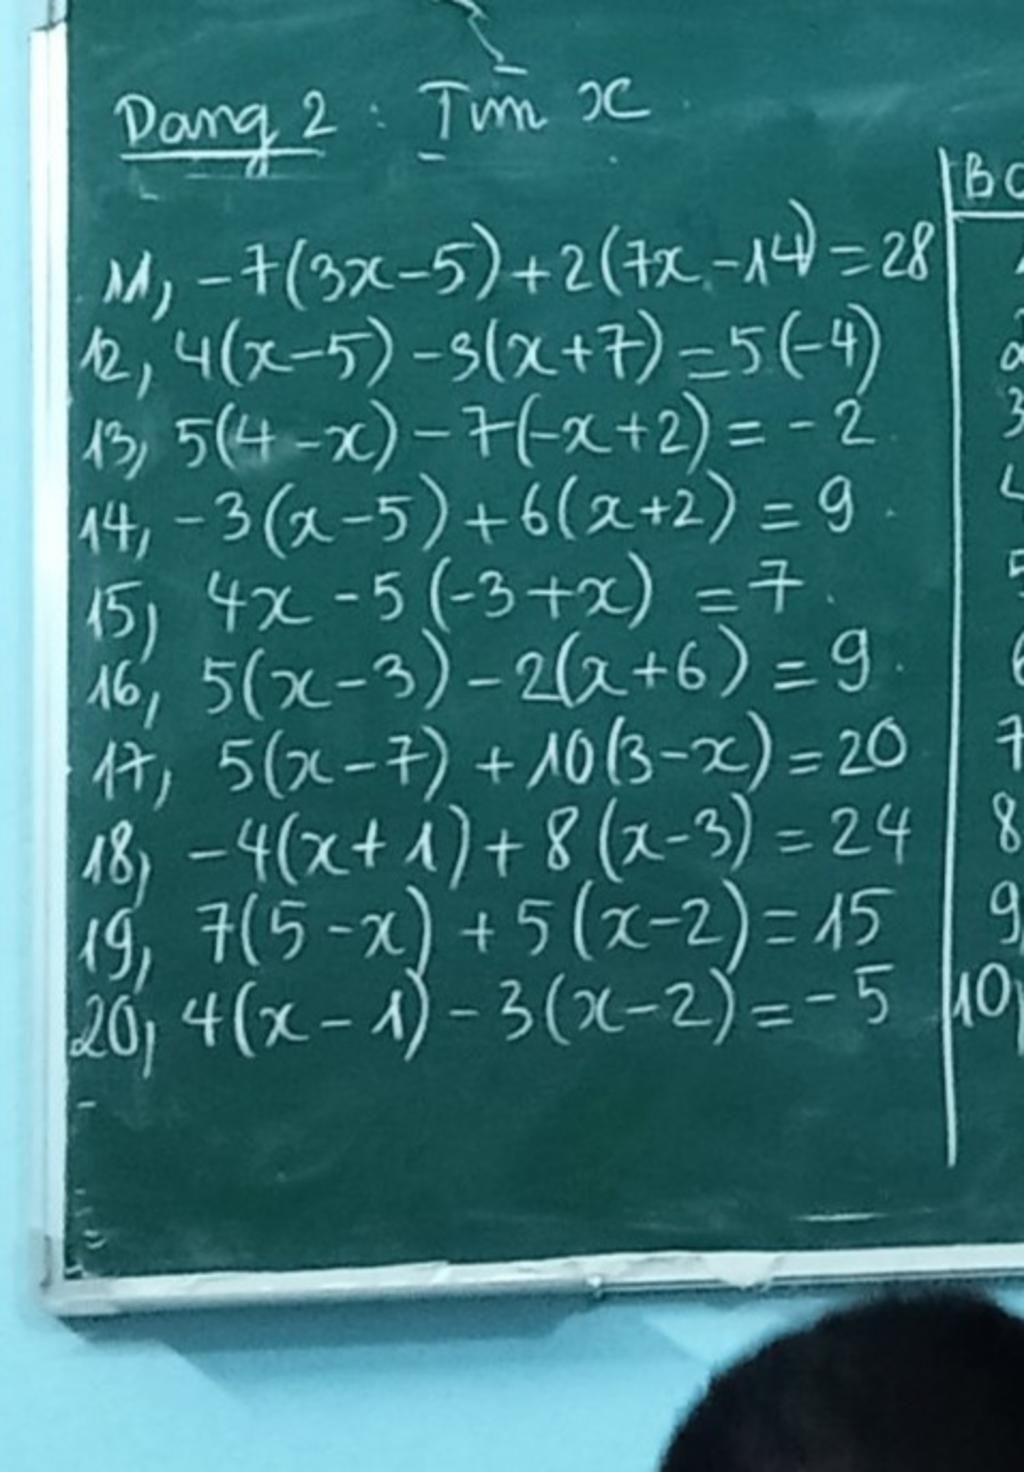 Dang 2 : Tìm x
11, -7(3x-5)+2(7x-14)=28
12, 4(x-5)-3(x+7)=5(-4)
13, 5(4-x)-7(-x+2)=-2
14, -3(x-5)+6(x+2)=9
15, 4x-5(-3+x)=7
16, 5(x-3)-2(x+6)=9
17, 5(x-7)+10(3-x)=20
18, -4(x+1)+8(x-3)=24
19, 7(5-x)+5(x-2)=15
20, 4(x-1)-3(x-2)=-5
3
4
5
6
7
8
9,
10,